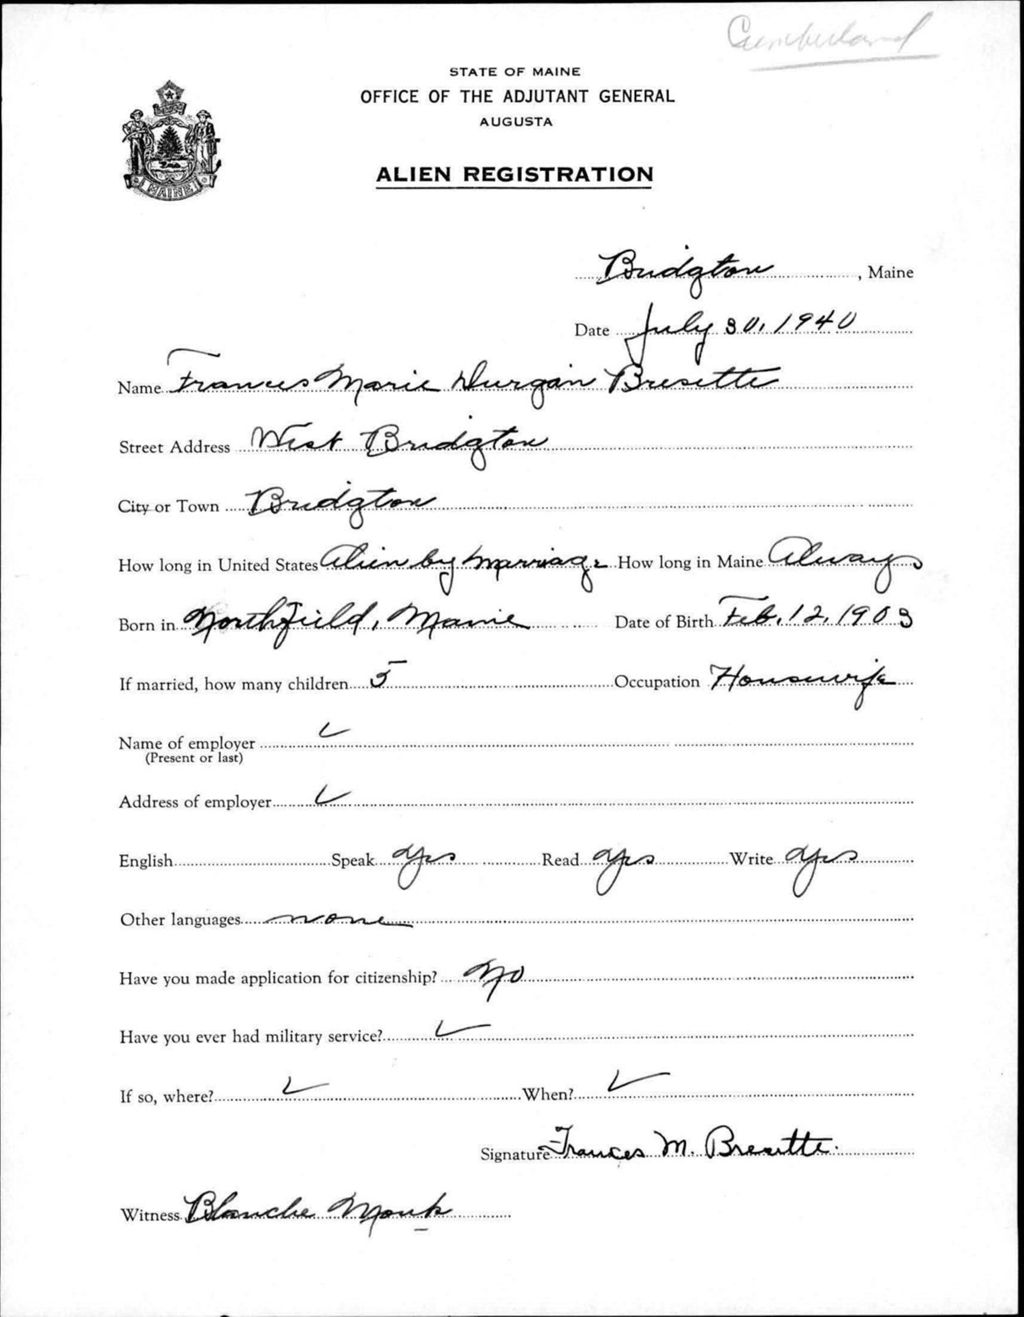 Cumberland
STATE OF MAINE
OFFICE OF THE ADJUTANT GENERAL
AUGUSTA
MAINE
ALIEN REGISTRATION
Bridgton, Maine
Date July 30, 1940
Name Frances Marie Durgan Bresette
Street Address West Bridgton
City or Town Bridgton
How long in United States Alien by Marriage How long in Maine Always
Born in Northfield, Maine Date of Birth Feb. 12, 1903
If married, how many children 5 Occupation Housewife
Name of employer ✓
(Present or last)
Address of employer ✓
English Speak Yes Read Yes Write Yes
Other languages none
Have you made application for citizenship? No
Have you ever had military service? ✓
If so, where? ✓ When? ✓
Signature Frances M. Bresette.
Witness Blanche Monk